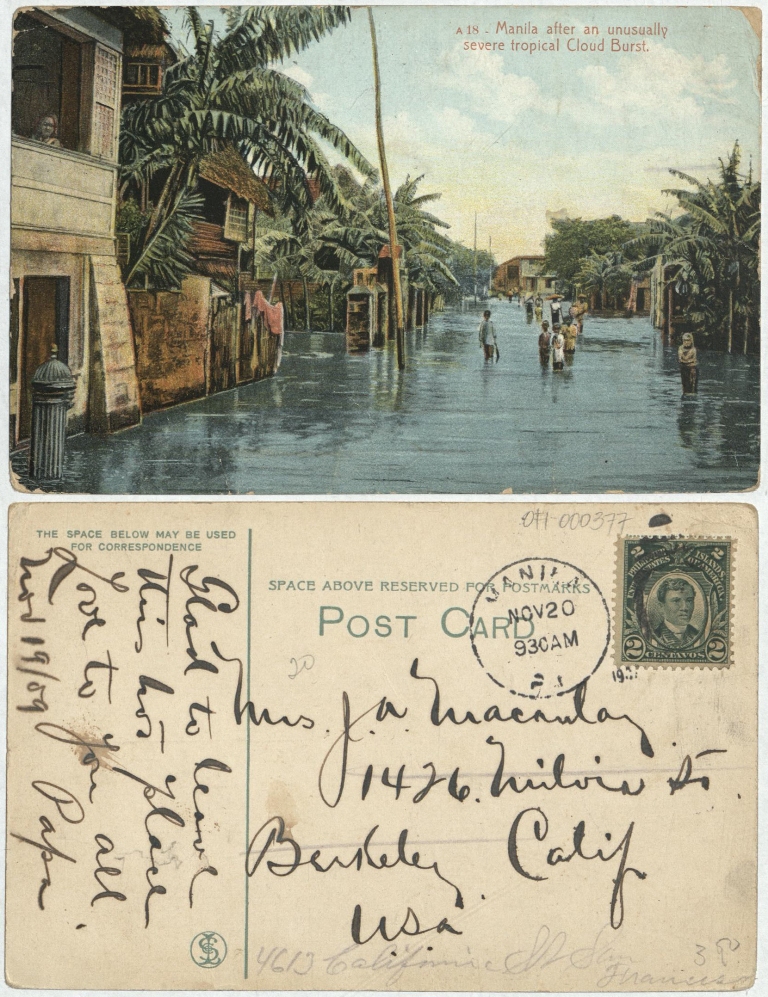 A 18 - Manila after an unusually
severe tropical Cloud Burst.
011-000377
THE SPACE BELOW MAY BE USED
FOR CORRESPONDENCE
SPACE ABOVE RESERVED FOR POSTMARKS
POST CARD
MANILA
NOV 20
930AM
P.I.
2 2
PHILIPPINE ISLANDS
UNITED STATES OF AMERICA
2 CENTAVOS 2
20
Glad to leave
this hot place
Love to you all
Nov 19/09 Papa.
Mrs. J. A. Macaulay
1426. Milvia St
Berkeley Calif
USA
4613 California St San
Francisco
3